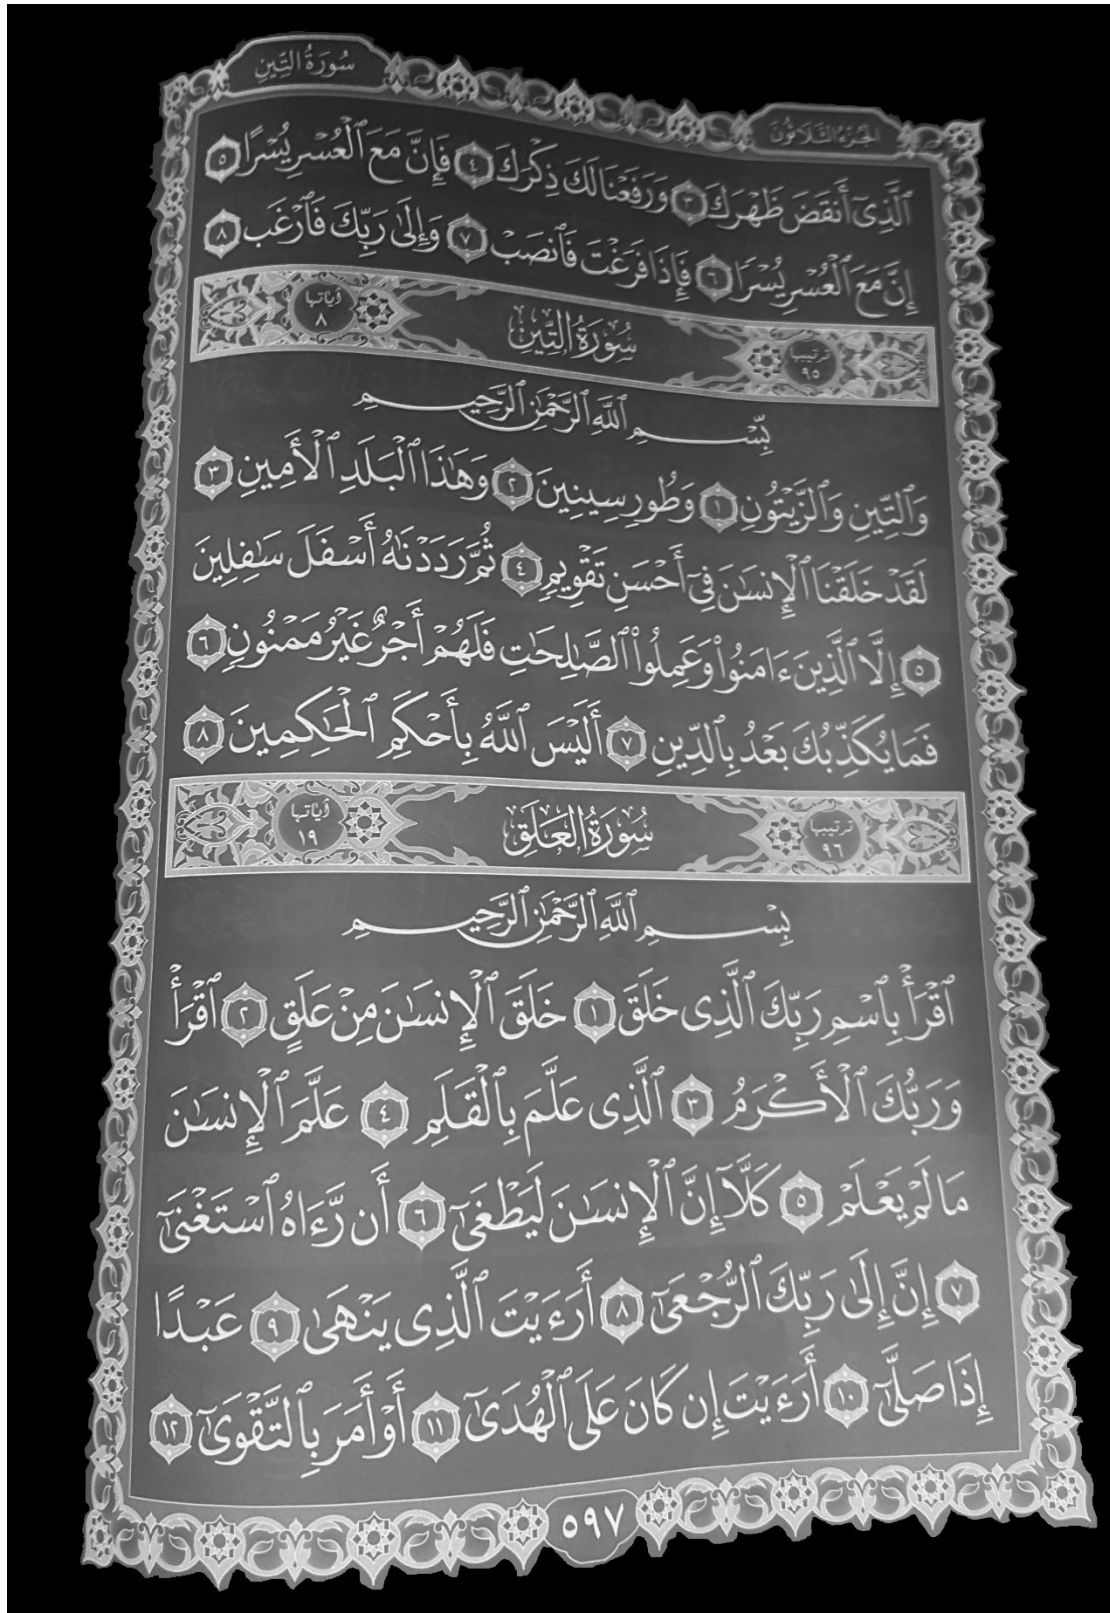 الجُزءُ الثَّلَاثُونَ
سُورَةُ التِّينِ
ٱلَّذِىٓ أَنقَضَ ظَهْرَكَ ٣ وَرَفَعْنَا لَكَ ذِكْرَكَ ٤ فَإِنَّ مَعَ ٱلْعُسْرِ يُسْرًا ٥
إِنَّ مَعَ ٱلْعُسْرِ يُسْرًا ٦ فَإِذَا فَرَغْتَ فَٱنصَبْ ٧ وَإِلَىٰ رَبِّكَ فَٱرْغَب ٨
ترتيبها ٩٥ سُورَةُ التِّينِ آياتها ٨
بِّسْمِ ٱللَّهِ ٱلرَّحْمَٰنِ ٱلرَّحِيمِ
وَٱلتِّينِ وَٱلزَّيْتُونِ ١ وَطُورِ سِينِينَ ٢ وَهَٰذَا ٱلْبَلَدِ ٱلْأَمِينِ ٣
لَقَدْ خَلَقْنَا ٱلْإِنسَٰنَ فِىٓ أَحْسَنِ تَقْوِيمٍ ٤ ثُمَّ رَدَدْنَٰهُ أَسْفَلَ سَٰفِلِينَ
٥ إِلَّا ٱلَّذِينَ ءَامَنُوا۟ وَعَمِلُوا۟ ٱلصَّٰلِحَٰتِ فَلَهُمْ أَجْرٌ غَيْرُ مَمْنُونٍ ٦
فَمَا يُكَذِّبُكَ بَعْدُ بِٱلدِّينِ ٧ أَلَيْسَ ٱللَّهُ بِأَحْكَمِ ٱلْحَٰكِمِينَ ٨
ترتيبها ٩٦ سُورَةُ العَلَقِ آياتها ١٩
بِسْمِ ٱللَّهِ ٱلرَّحْمَٰنِ ٱلرَّحِيمِ
ٱقْرَأْ بِٱسْمِ رَبِّكَ ٱلَّذِى خَلَقَ ١ خَلَقَ ٱلْإِنسَٰنَ مِنْ عَلَقٍ ٢ ٱقْرَأْ
وَرَبُّكَ ٱلْأَكْرَمُ ٣ ٱلَّذِى عَلَّمَ بِٱلْقَلَمِ ٤ عَلَّمَ ٱلْإِنسَٰنَ
مَا لَمْ يَعْلَمْ ٥ كَلَّآ إِنَّ ٱلْإِنسَٰنَ لَيَطْغَىٰٓ ٦ أَن رَّءَاهُ ٱسْتَغْنَىٰٓ
٧ إِنَّ إِلَىٰ رَبِّكَ ٱلرُّجْعَىٰٓ ٨ أَرَءَيْتَ ٱلَّذِى يَنْهَىٰ ٩ عَبْدًا
إِذَا صَلَّىٰٓ ١٠ أَرَءَيْتَ إِن كَانَ عَلَى ٱلْهُدَىٰٓ ١١ أَوْ أَمَرَ بِٱلتَّقْوَىٰٓ ١٢
٥٩٧